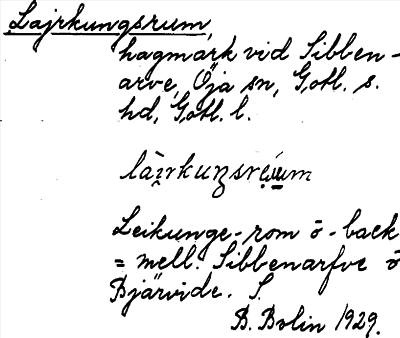 Lajrkungsrum,
hagmark vid Sibben-
arve, Öja sn, Gotl. s.
hd, Gotl. l.
Leikunge-rom ō-back
= mell. Sibbenarfve ō
Bjärvide. S.
B. Bolin 1929.